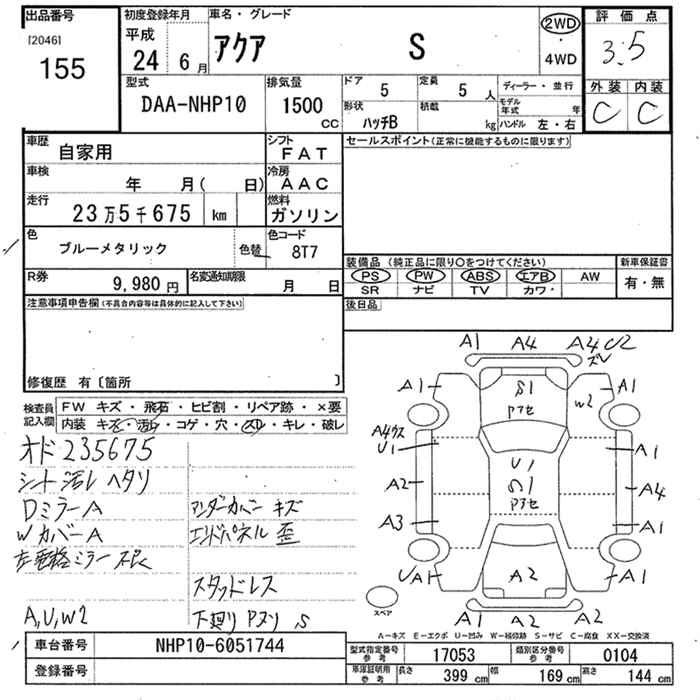 出品番号
[2046]
155
初度登録年月
平成
24 6 月
車名・グレード
アクア S
2WD
・
4WD
評価点
3.5
外装 内装
C C
型式
DAA-NHP10
排気量
1500 CC
ドア 5
定員 5 人
形状 ハッチB
積載 kg
ディーラー・並行
モデル年式 年
ハンドル 左・右
車歴 自家用
シフト FAT
車検 年 月( 日)
冷房 AAC
走行 23万5千675 km
燃料 ガソリン
色 ブルーメタリック 色替
色コード 8T7
R券 9,980 円
名変通知期限 月 日
セールスポイント(正常に機能するものに限ります)
装備品(純正品に限り○をつけてください)
新車保証書
PS PW ABS エアB AW
有・無
SR ナビ TV カワ・
後日品
注意事項申告欄(不具合内容等は具体的に記入して下さい)
修復歴 有〔箇所 〕
検査員記入欄
FW キズ・飛石・ヒビ割・リペア跡・×要
内装 キズ・汚れ・コゲ・穴・スレ・キレ・破レ
オド 235675
シート 汚レ ヘタリ
DミラーA
アンダーカバー キズ
WカバーA
エンドパネル 歪
左電格ミラー 不良
スタッドレス
A,U,W2
下廻り Pヌリ S
A1 A4 A4 U2
ズレ
A1 S1 Pアセ W2 A1
A4 U1 A1
U1
Pアセ
A2 A4
A3 A1
UA1 A2 A1
A1 A2 A2
スペア
A―キズ E―エクボ U―凹み W―補修跡 S―サビ C―腐食 XX―交換済
車台番号 NHP10-6051744
登録番号
型式指定番号 参考 17053
類別区分番号 参考 0104
車庫証明用 参考 長さ 399 cm 幅 169 cm 高さ 144 cm